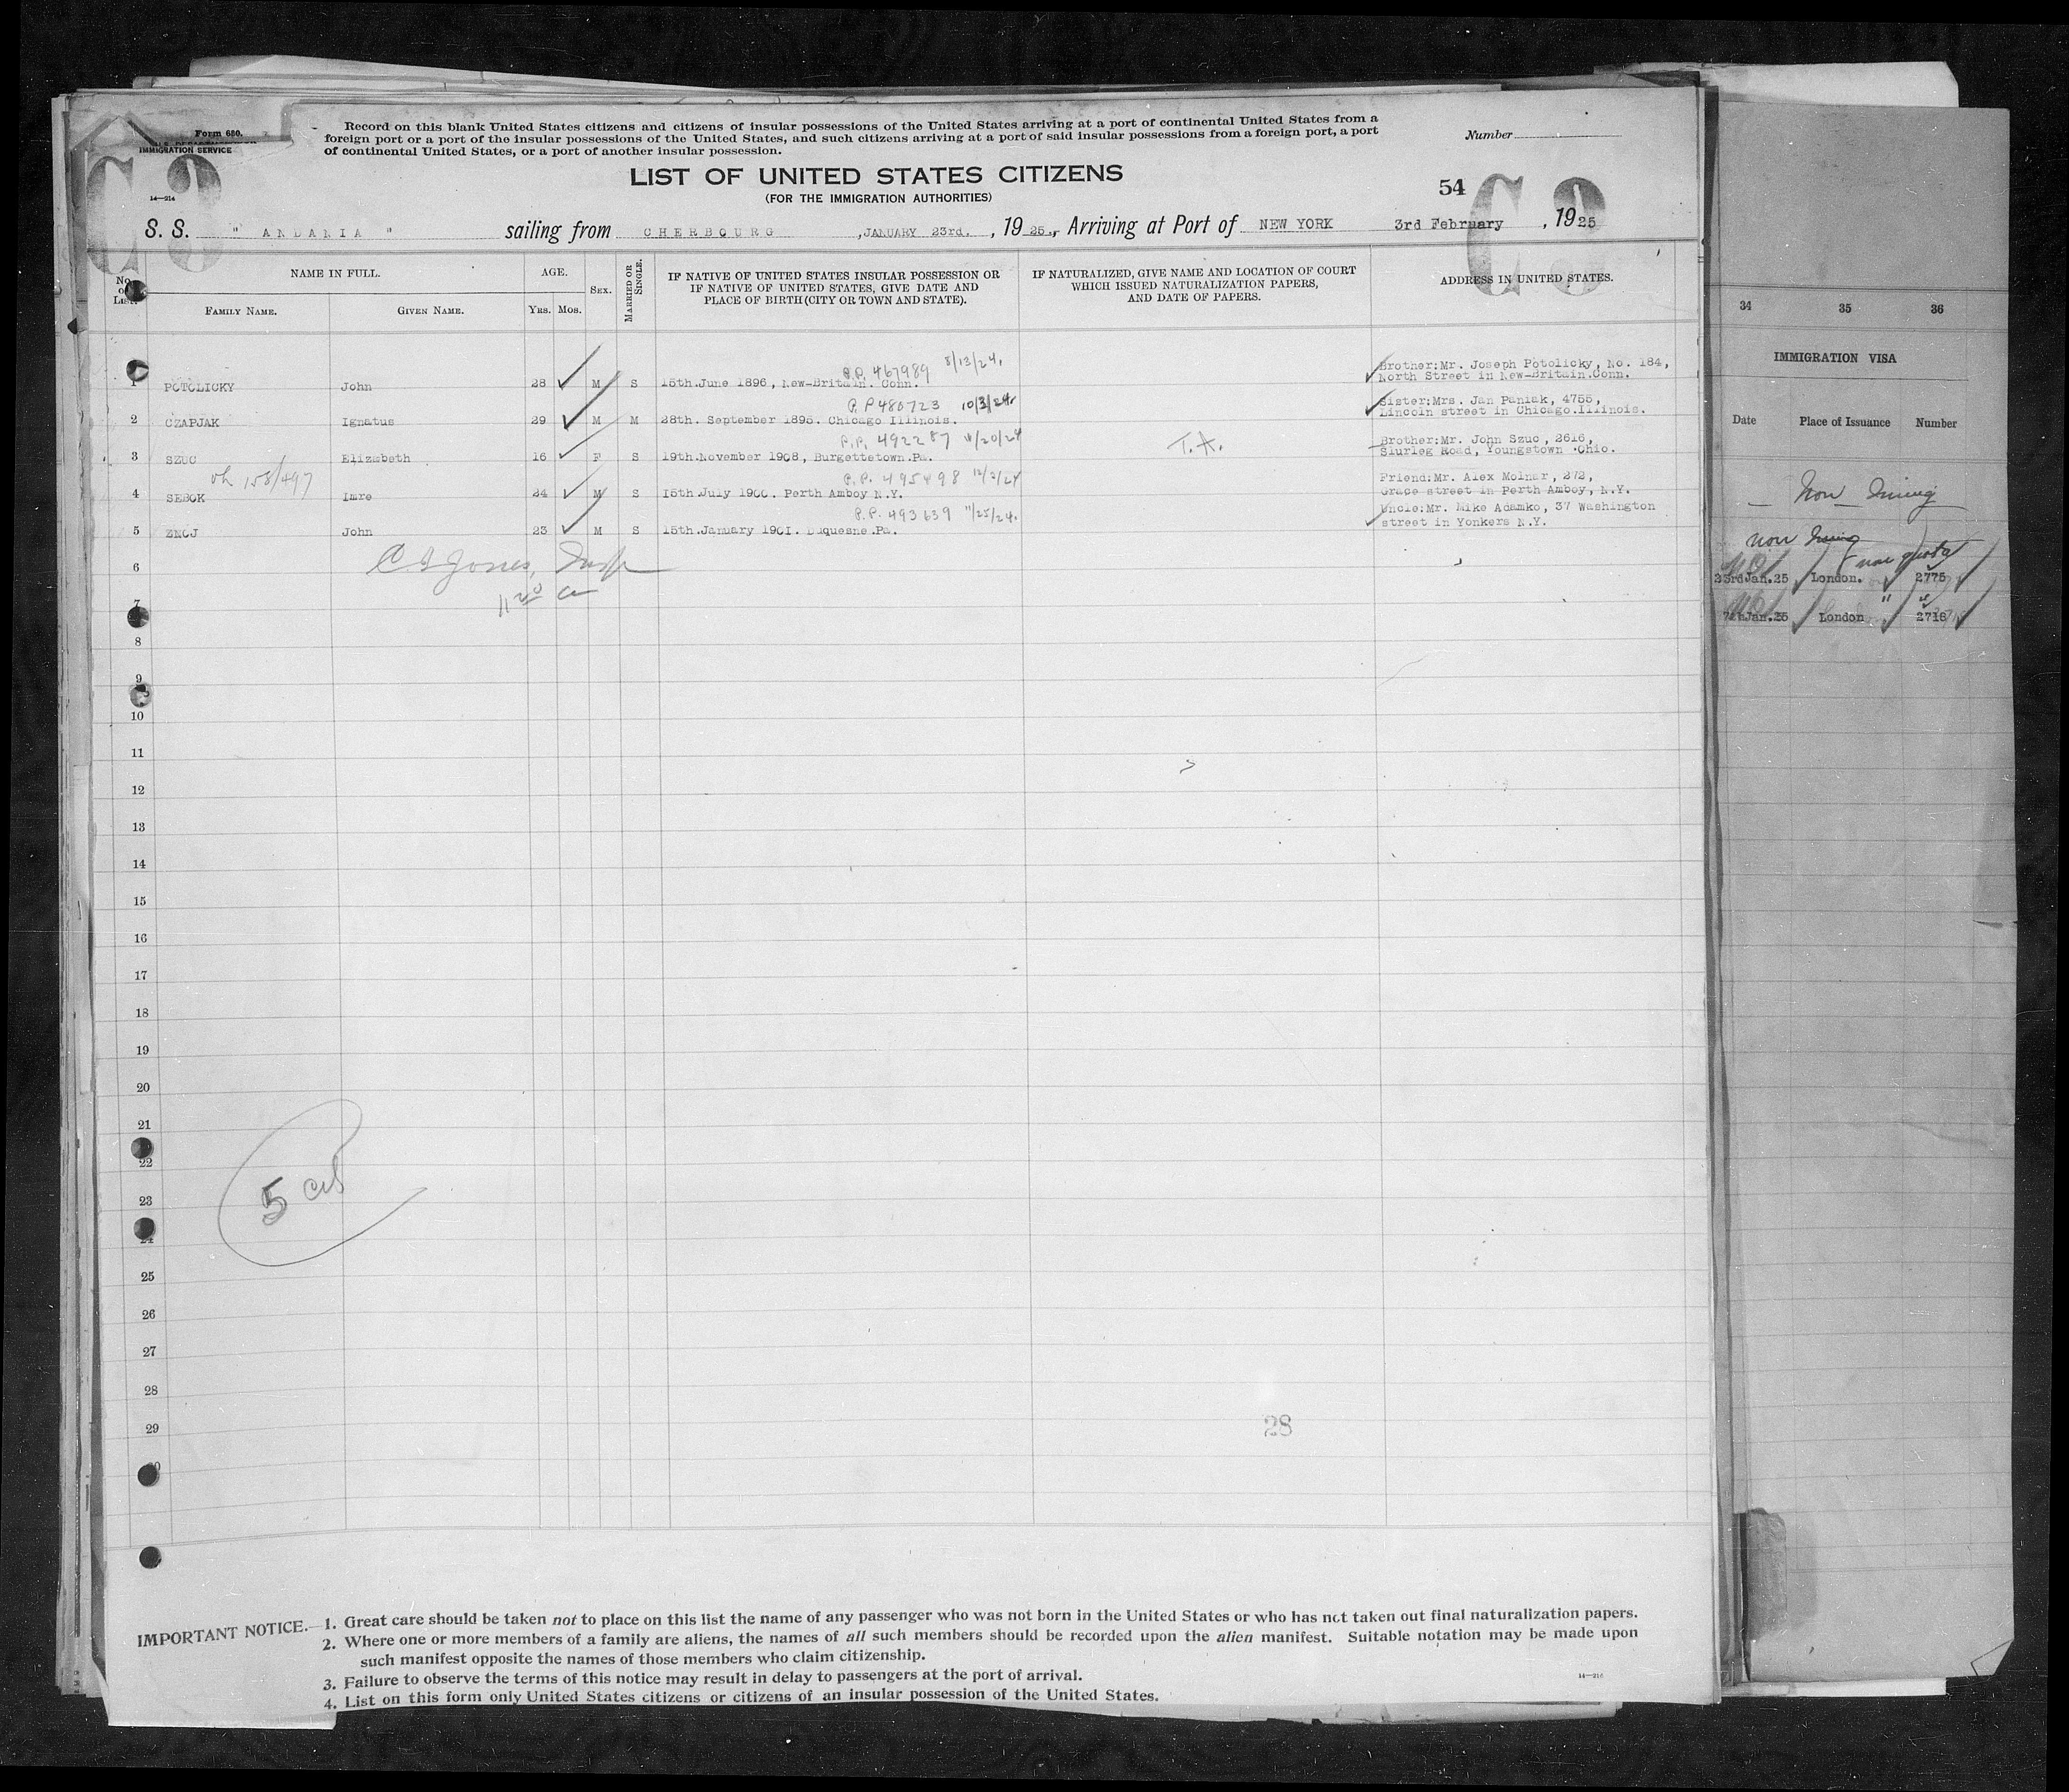 Form 680.
IMMIGRATION SERVICE
14—214
C 3
Record on this blank United States citizens and citizens of insular possessions of the United States arriving at a port of continental United States from a
foreign port or a port of the insular possessions of the United States, and such citizens arriving at a port of said insular possessions from a foreign port, a port
of continental United States, or a port of another insular possession.
Number
LIST OF UNITED STATES CITIZENS
(FOR THE IMMIGRATION AUTHORITIES)
54
C 3
S. S. " ANDANIA " sailing from CHERBOURG , JANUARY 23rd. , 19 25., Arriving at Port of NEW YORK 3rd February , 19 25
No. on List.
NAME IN FULL.
FAMILY NAME. GIVEN NAME.
AGE.
YRS. MOS.
SEX.
MARRIED OR SINGLE.
IF NATIVE OF UNITED STATES INSULAR POSSESSION OR
IF NATIVE OF UNITED STATES, GIVE DATE AND
PLACE OF BIRTH (CITY OR TOWN AND STATE).
IF NATURALIZED, GIVE NAME AND LOCATION OF COURT
WHICH ISSUED NATURALIZATION PAPERS,
AND DATE OF PAPERS.
ADDRESS IN UNITED STATES.
P.P. 467989 8/13/24.
Brother:Mr. Joseph Potolicky, No. 184,
1 POTOLICKY John 28 M S 15th.June 1896, New-Britain. Conn. North Street in New-Britain.Conn.
P.P 486723 10/3/24.
Sister:Mrs. Jan Paniak, 4755,
2 CZAPJAK Ignatus 29 M M 28th. September 1895. Chicago Illinois. Lincoln street in Chicago.Illinois.
P.P. 492287 11/20/24
T.A.
Brother:Mr. John Szuc, 2616,
3 SZUC Elizabeth 16 F S 19th.November 1908, Burgettetown.Pa. Slurleg Road, Youngstown .Ohio.
158/497
P.P. 495498 12/2/24
Friend:Mr. Alex Molnar, 272,
4 SEBOK Imre 24 M S 15th.July 1900. Perth Amboy N.Y. Grace street in Perth Amboy, N.Y.
P.P. 493639 11/25/24.
Uncle:Mr. Mike Adamko, 37 Washington
5 ZNOJ John 23 M S 15th.January 1901. Duquesne.Pa. street in Yonkers N.Y.
6 Jones, Insp
7
8
9
10
11
12
13
14
15
16
17
18
19
20
21
22
23
24
25
26
27
28
29
5
28
IMPORTANT NOTICE.—1. Great care should be taken not to place on this list the name of any passenger who was not born in the United States or who has not taken out final naturalization papers.
2. Where one or more members of a family are aliens, the names of all such members should be recorded upon the alien manifest. Suitable notation may be made upon
such manifest opposite the names of those members who claim citizenship.
3. Failure to observe the terms of this notice may result in delay to passengers at the port of arrival.
4. List on this form only United States citizens or citizens of an insular possession of the United States.
34 35 36
IMMIGRATION VISA
Date Place of Issuance Number
Non
non
non quota
23rdJan.25 London. 2775
London " 2716